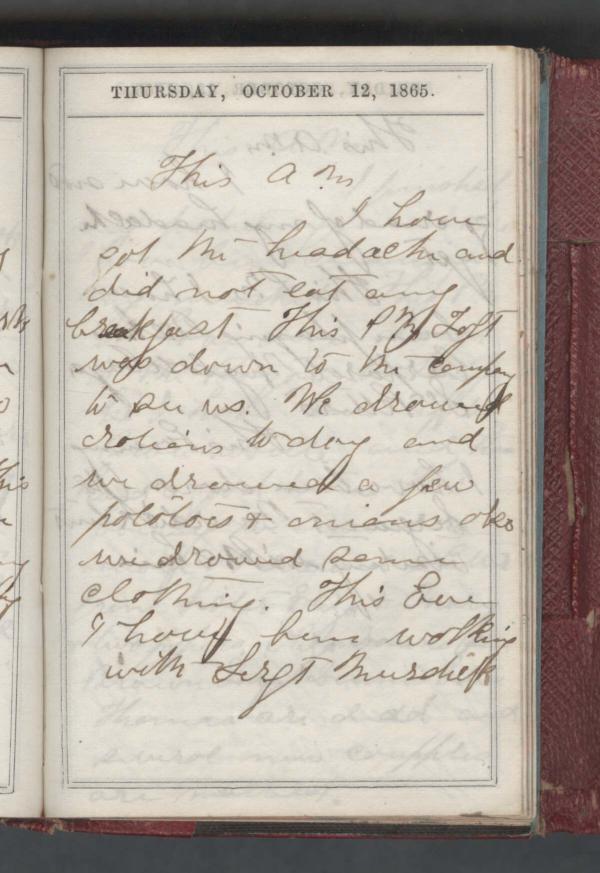 THURSDAY, OCTOBER 12, 1865.
This A M
I have
got the headache and
did not eat any
breakfast This P M Toft
was down to the company
to see us. We drawed
rotions today and
we drawed a few
pototoes & onions also
we drowed some
clothing. This Eve
I have been walking
with Sergt Murdick